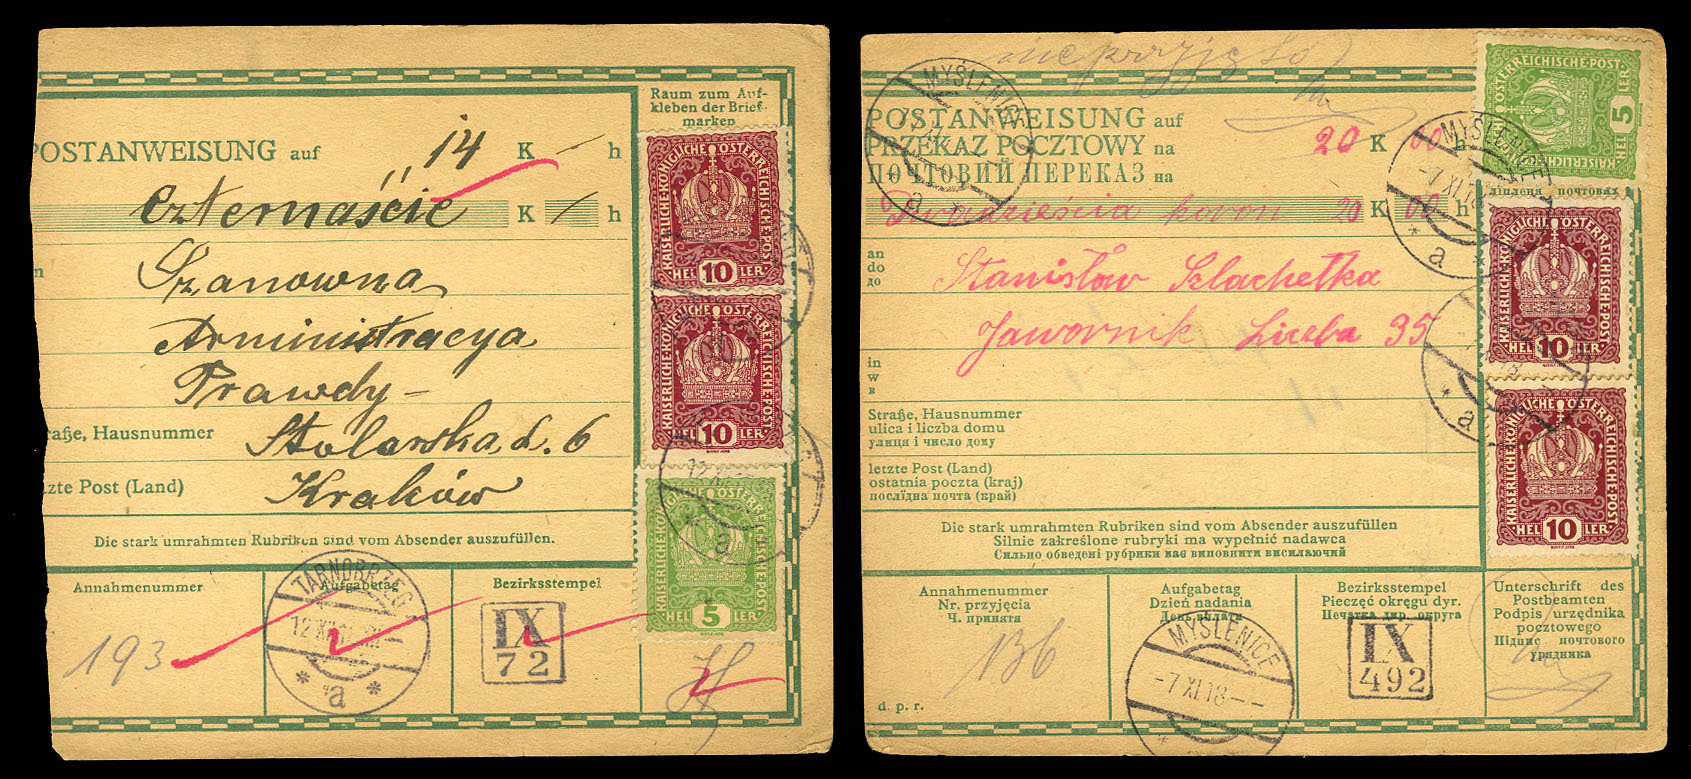 Raum zum Auf-
kleben der Brief-
marken
POSTANWEISUNG auf 14 K — h
czternaście K — h
Szanowna
Administracya
Prawdy -
raße, Hausnummer
Stolarska, L. 6
zte Post (Land)
Kraków
Die stark umrahmten Rubriken sind vom Absender auszufüllen.
Annahmenummer
Aufgabetag
Bezirksstempel
193
TARNOBRZEG
a
IX
72
KAISERLICHE·KÖNIGLICHE ÖSTERREICHISCHE·POST
HEL 10 LER
KAISERLICHE·KÖNIGLICHE ÖSTERREICHISCHE·POST
HEL 10 LER
HEL 5 LER
a
nieprzyjęto
MYŚLENICE
a
POSTANWEISUNG auf
PRZEKAZ POCZTOWY na 20 K 00 h
ПОЧТОВИЙ ПЕРЕКАЗ на
Dwadzieścia koron 20 K 00 h
an
do
до
Stanisław Szlachetka
Jawornik Liczba 35
in
w
в
Straße, Hausnummer
ulica i liczba domu
улиця і число дому
letzte Post (Land)
ostatnia poczta (kraj)
послїдна почта (край)
Die stark umrahmten Rubriken sind vom Absender auszufüllen
Silnie zakreślone rubryki ma wypełnić nadawca
Сильно обведені рубрики має виповнити висилаючий
Annahmenummer
Nr. przyjęcia
Ч. принята
Aufgabetag
Dzień nadania
День надання
Bezirksstempel
Pieczęć okręgu dyr.
Печатка дир. округа
Unterschrift des
Postbeamten
Podpis urzędnika
pocztowego
Підпис почтового
урядника
136
MYŚLENICE
-7 XI 18-
IX
492
d. p. r.
ÖSTERREICHISCHE·POST
5
MYŚLENICE
-7 XI 18
a
лїплена почтових
KAISERLICHE·KÖNIGLICHE ÖSTERREICHISCHE·POST
HEL 10 LER
a
KAISERLICHE·KÖNIGLICHE ÖSTERREICHISCHE·POST
HEL 10 LER